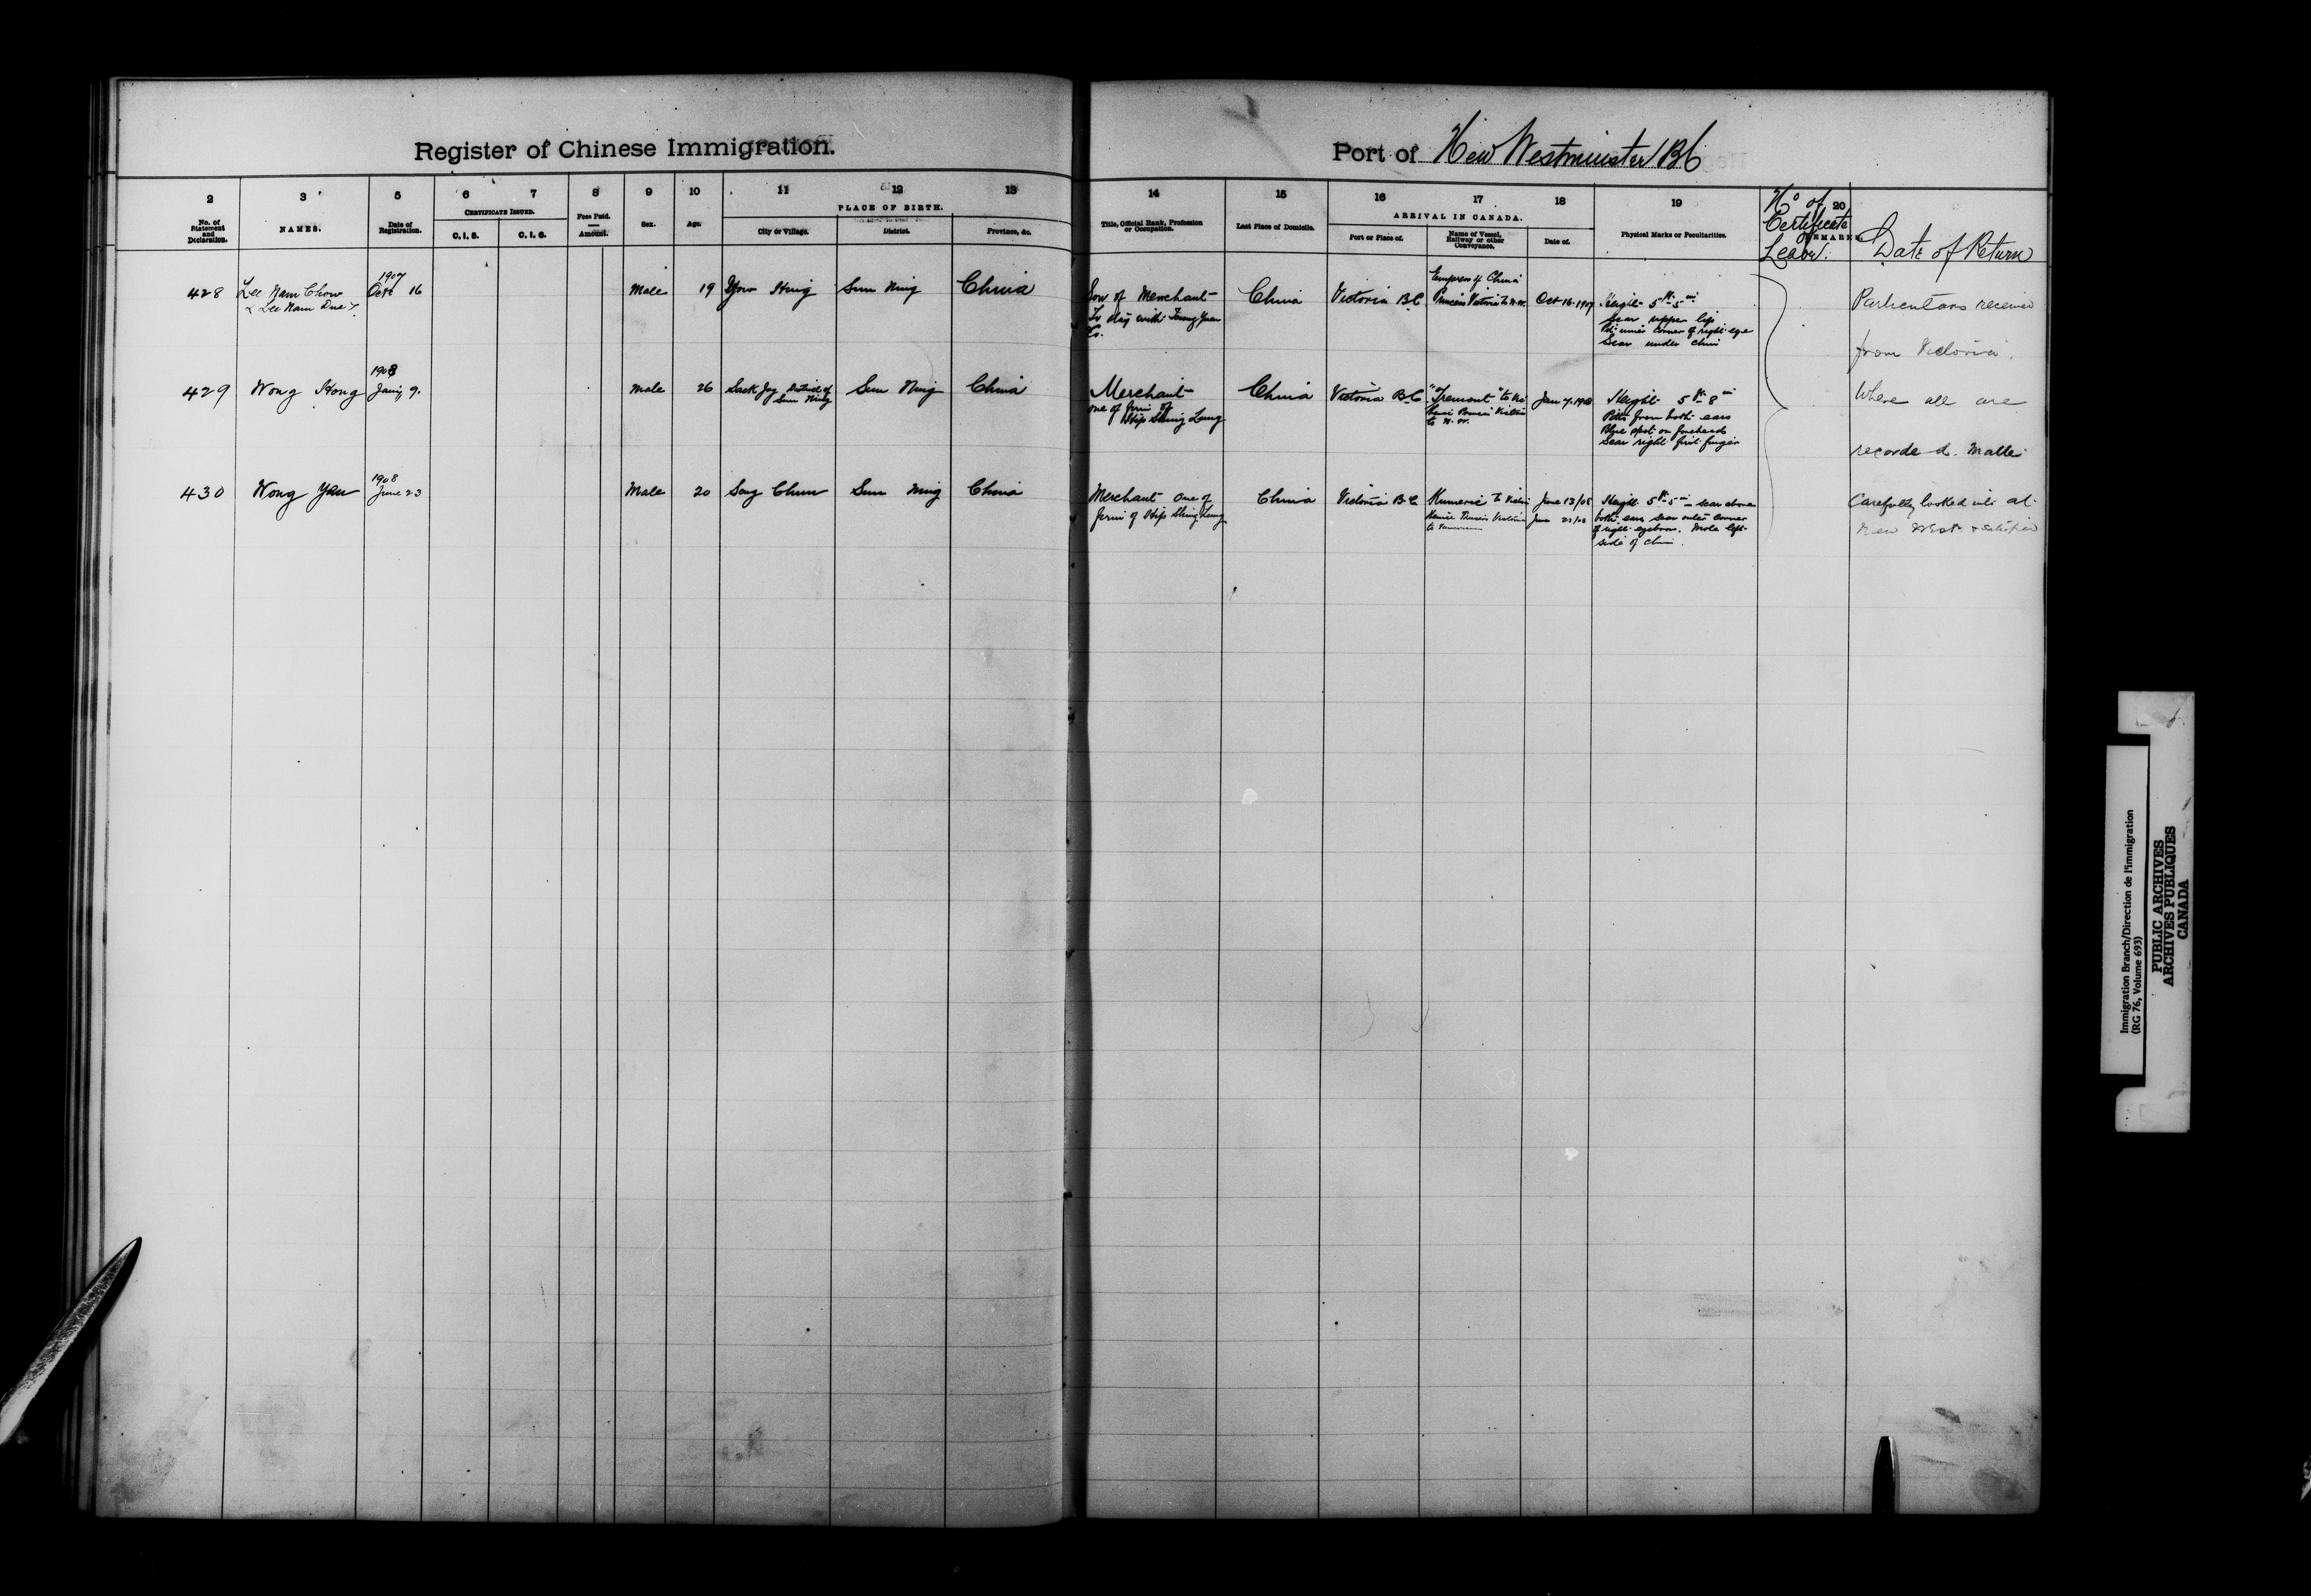 Register of Chinese Immigration.
Port of New Westminster BC
2 3 5 6 7 8 9 10 11 12 13
No. of Statement and Declaration.
NAMES.
Date of Registration.
CERTIFICATE ISSUED.
C. I. 5.
C. I. 6.
Fees Paid.
Amount.
Sex.
Age.
PLACE OF BIRTH.
City or Village.
District.
Province, &c.
14 15 16 17 18 19 20
Title, Official Rank, Profession or Occupation.
Last Place of Domicile.
ARRIVAL IN CANADA.
Port or Place of.
Name of Vessel, Railway or other Conveyance.
Date of.
Physical Marks or Peculiarities.
REMARKS
No of Certificate Leave.
Date of Return
428
Lee Nam Chow
Lee Nam Due
1907
Oct 16
Male
19
Yow Hing
Sun Ning
China
Son of Merchant
To stay with Young Yuen
Co.
China
Victoria BC
Empress of China
Princess Victoria to N.W.
Oct 16. 1907
Height 5 ft 5 in
Scar upper lip
Pit inner corner of right eye
Scar under chin
429
Wong Hong
1908
Jany 9.
Male
26
Sack Joy District of
Sun Ning
Sun Ning
China
Merchant
one of firm of
Hip Shing Lung
China
Victoria BC
"Tremont" to Vic
to N. W.
Jan 7. 1908
Height 5 ft 8 in
Pitts from both ears
Blue spot on forehead
Scar right first finger
430
Wong Yau
1908
June 23
Male
20
Song Chun
Sun Ning
China
Merchant one of
firm of Hip Shing Lung
China
Victoria BC
Kumeric to Victoria
thence Princess Victoria
to Vancouver
June 13/08
June 23/08
Height 5 ft 5 in scar above
both ears scar outer corner
of right eyebrow. Mole left
side of chin.
Particulars received
from Victoria.
Where all are
recorded. Matter
Carefully looked into at
New West & satisfied
Immigration Branch/Direction de l'immigration
(RG 76, Volume 693)
PUBLIC ARCHIVES
ARCHIVES PUBLIQUES
CANADA